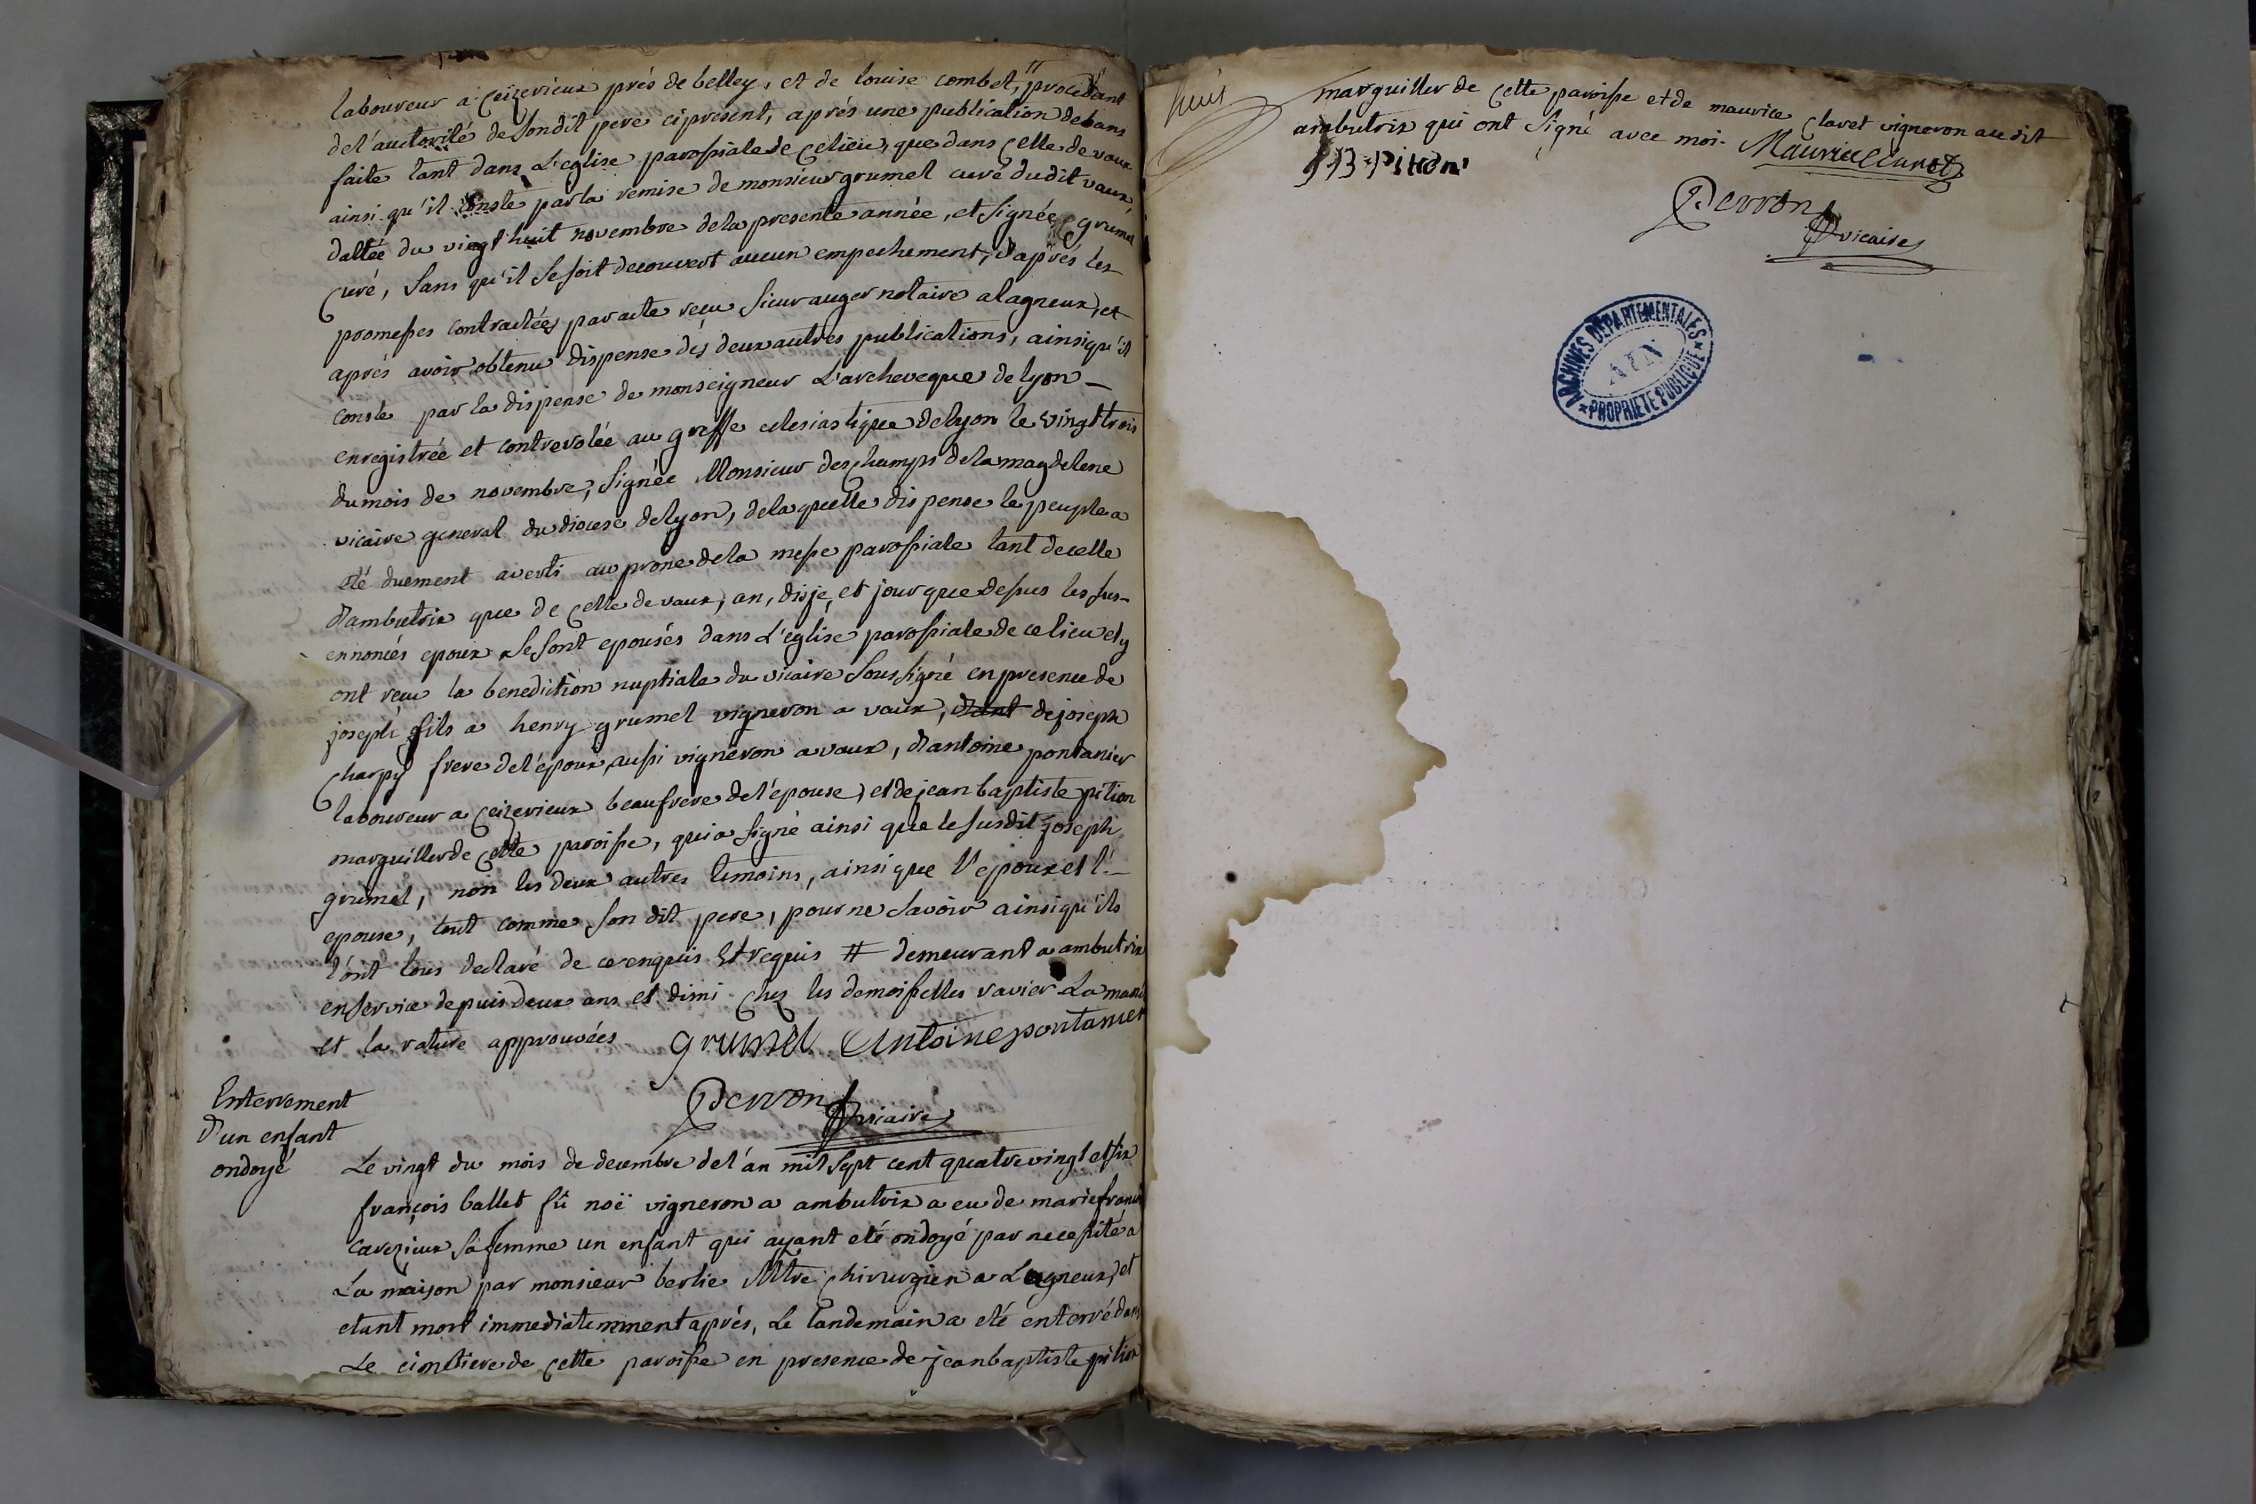 laboureur a Ceizerieux prés de belley, et de louise combet, # procedant
de l'autorité de Son dit pere ci present, aprés une publication de bans
faite tant dans L'eglise parossiale de ce lieu, que dans Celle de vaux
ainsi qu'il Conste par la remise de monsieur grumel curé du dit vaux,
dattée du vingt huit novembre de la presente année, et Signée grumel
Curé, Sans qu'il Se soit decouvert aucun empechement, d'aprés les
promesses Contractées par acte recu Sieur auger notaire a lagneux, et
aprés avoir obtenu dispense des deux autres publications, ainsi qu'il
conste par la dispense de monseigneur L'archeveque de lyon –
enregistrée et controrolée au greffe eclesiastique de lyon le vingt trois
du mois de novembre, Signée Monsieur deschamps de la magdelene
vicaire general du diocese de lyon, de la quelle dispense le peuple a
eté duement averti au prone de la messe parossiale tant de celle
d'ambutrix que de Celle de vaux, an, dis je, et jour que dessus les sus-
ennoncés epoux Se sont epousés dans L'église parossiale de ce lieu et y
ont recu la benediction nuptiale du vicaire Sous signé en presence de
joseph fils a henry grumel vigneron a vaux, dant de joseph
Charpy frere de l'époux, aussi vigneron a vaux, d'antoine pontanier
laboureur a Ceizerieux beaufrere de l'épouse, et de jean baptiste pition
marguiller de Cette paroisse, qui a Signé ainsi que le susdit joseph
grumel, non les deux autres temoins, ainsi que l'epoux et l'-
epouse, tout comme Son dit pere, pour ne Savoir ainsi qu'ils
l'ont tous declaré de ce enquis Et requis # demeurant a ambutrix
en Service depuis deux ans et dimi Chez les demoiselles ravier La marge
et la rature approuvées grumel Antoine pontanier
Perron vicaire
Enterrement
d'un enfant
ondoyé
Le vingt du mois de decembre de l'an mil Sept cent quatre vingt et six
françois ballet fû noë vigneron a ambutrix a eu de marie francoise
carezieux Sa femme un enfant qui ayant eté ondoyé par necessité a
La maison par monsieur berlie Mtre Chirurgien a Lagneux, et
etant mort immediatemment aprés, Le landemain a eté enterré dans
Le cimtiere de Cette paroisse en presence de jean baptiste pition
huit
marguiller de Cette paroisse et de maurice Clavet vigneron au dit
ambutrix qui ont Signé avec moi.
Perron
vicaire
ARCHIVES DÉPARTEMENTALES
AIN
PROPRIÉTÉ PUBLIQUE